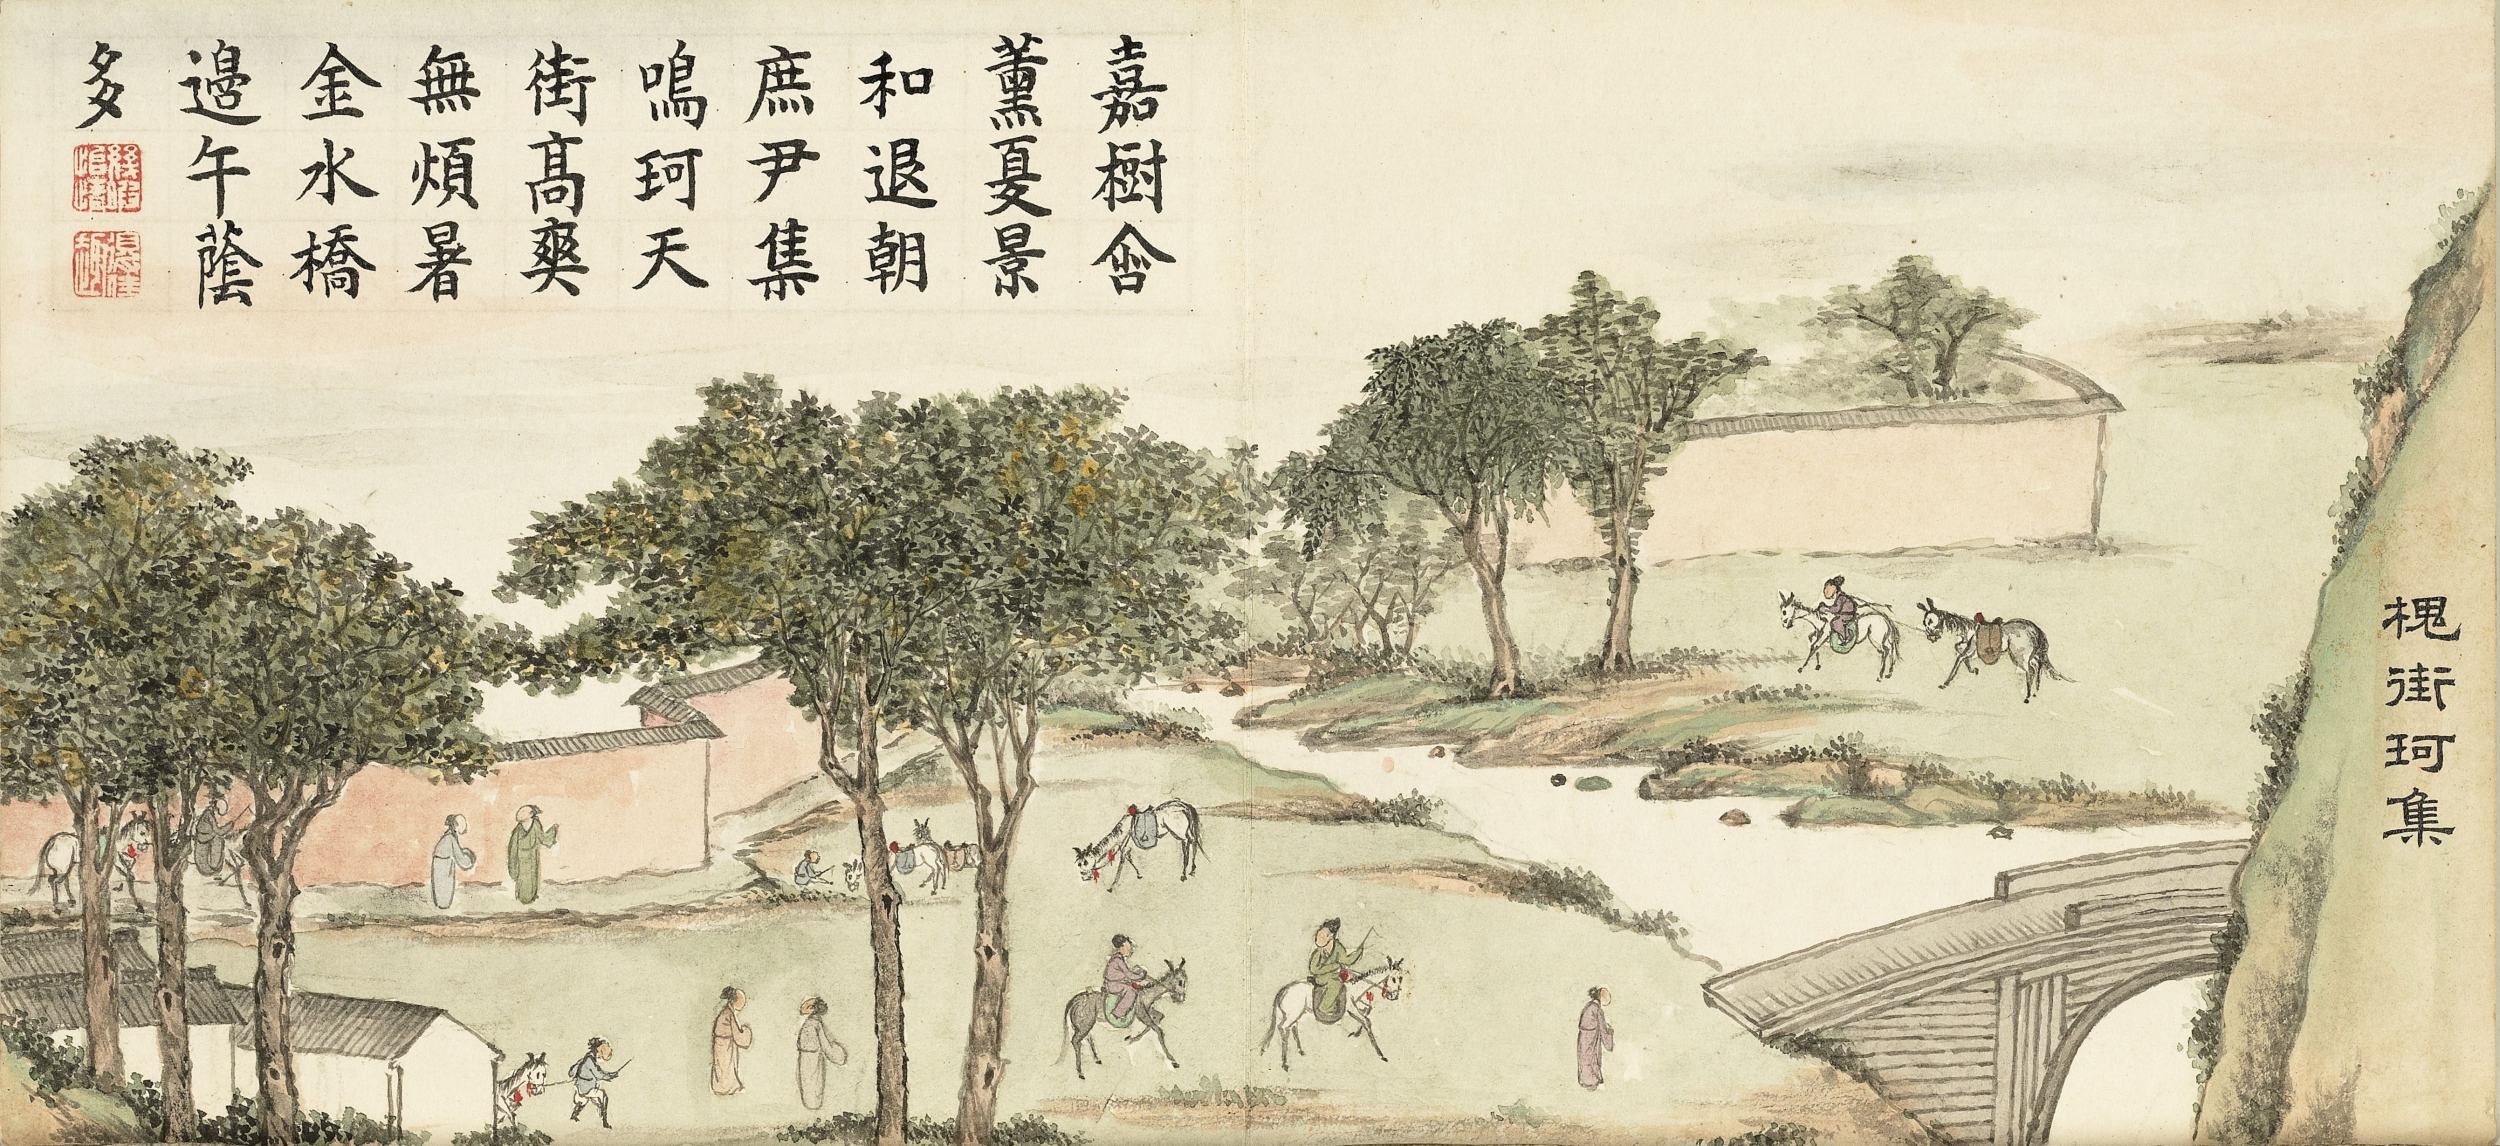 槐街珂集
嘉樹含
薰夏景
和退朝
庶尹集
鳴珂天
街髙爽
無煩暑
金水橋
邉午蔭
多